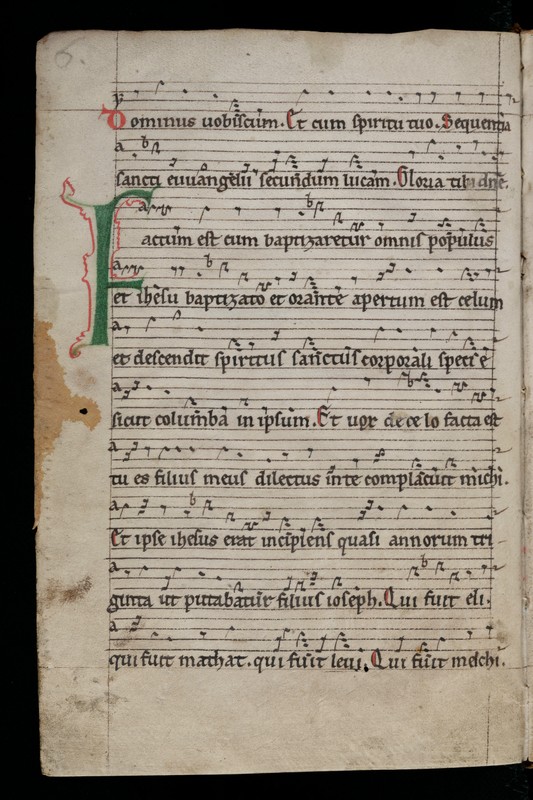 Dominus uobiscum. Et cum spiritu tuo. Sequentia
sancti euuangelii secundum lucam. Gloria tibi dñe.
Factum est cum baptizaretur omnis populus
et ihesu baptizato et orante apertum est celum
et descendit spiritus sanctus corporali specie
sicut columba in ipsum. Et uox de celo facta est
tu es filius meus dilectus in te complacuit michi.
Et ipse ihesus erat incipiens quasi annorum tri
ginta ut putabatur filius ioseph. Qui fuit eli.
qui fuit mathat. qui fuit leui. Qui fuit melchi.